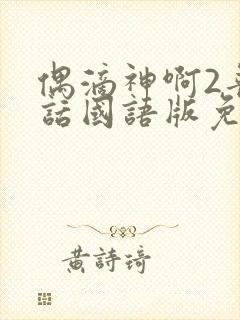 偶滴神啊2
話國語版免
黃詩琦